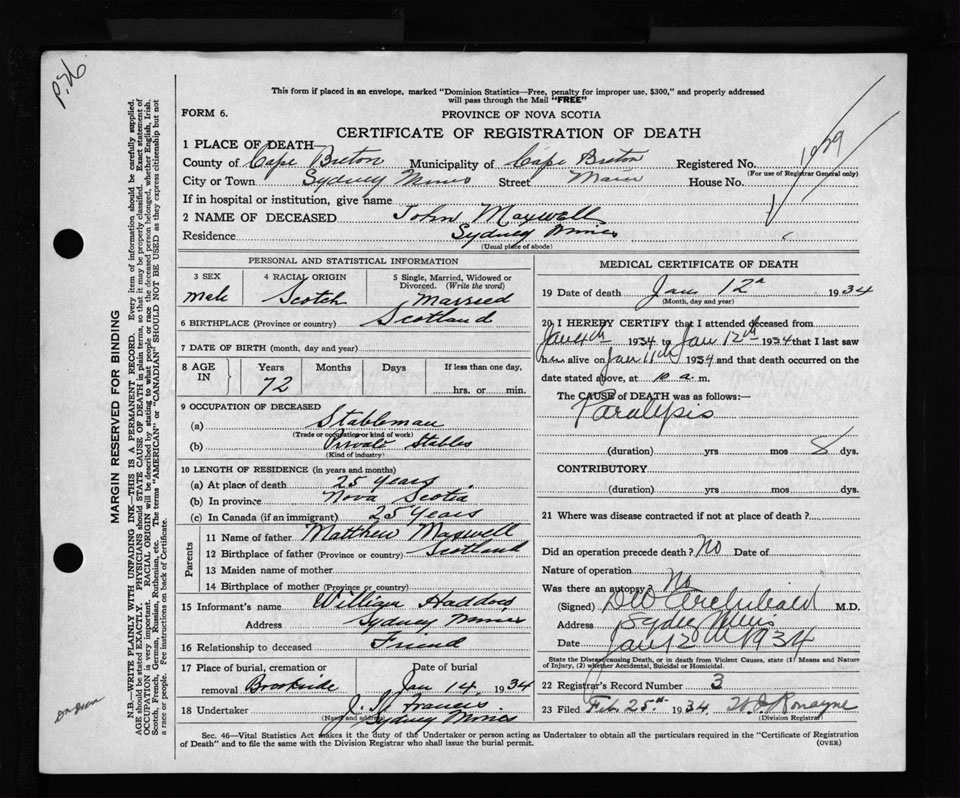 P.26
This form if placed in an envelope, marked "Dominion Statistics—Free, penalty for improper use, $300," and properly addressed
will pass through the Mail "FREE"
FORM 6.
PROVINCE OF NOVA SCOTIA
CERTIFICATE OF REGISTRATION OF DEATH
1 PLACE OF DEATH—
County of Cape Breton Municipality of Cape Breton Registered No.
(For use of Registrar General only)
City or Town Sydney Mines Street Main House No.
If in hospital or institution, give name
2 NAME OF DECEASED John Maxwell
Residence Sydney Mines
(Usual place of abode)
PERSONAL AND STATISTICAL INFORMATION
3 SEX 4 RACIAL ORIGIN 5 Single, Married, Widowed or
Divorced. (Write the word)
Male Scotch Married
6 BIRTHPLACE (Province or country) Scotland
7 DATE OF BIRTH (month, day and year)
8 AGE IN Years Months Days If less than one day,
72 hrs. or min.
9 OCCUPATION OF DECEASED
(a) Stableman
(Trade or occupation or kind of work)
(b) Private Stables
(Kind of industry)
10 LENGTH OF RESIDENCE (in years and months)
(a) At place of death 25 years
(b) In province Nova Scotia
(c) In Canada (if an immigrant) 25 years
Parents
11 Name of father Matthew Maxwell
12 Birthplace of father (Province or country) Scotland
13 Maiden name of mother
14 Birthplace of mother (Province or country)
15 Informant's name William
Address Sydney Mines
16 Relationship to deceased Friend
17 Place of burial, cremation or Date of burial
removal Brookside Jan 14, 1934
18 Undertaker J. Francis
(Name and address) Sydney Mines
MEDICAL CERTIFICATE OF DEATH
19 Date of death Jan 12 1934
(Month, day and year)
20 I HEREBY CERTIFY that I attended deceased from
Jan 4th 1934 to Jan 12th 1934 that I last saw
him alive on Jan 11th 1934 and that death occurred on
date stated above, at a. m.
The CAUSE of DEATH was as follows:—
Paralysis
(duration) yrs mos 8 dys.
CONTRIBUTORY
(duration) yrs mos dys.
21 Where was disease contracted if not at place of death?
Did an operation precede death? No Date of
Nature of operation
Was there an autopsy? No
(Signed) DW Archibald M.D.
Address Sydney Mines
Date Jan 12th 1934
State the Disease causing Death, or in death from Violent Causes, state (1) Means and Nature
of Injury, (2) whether Accidental, Suicidal or Homicidal.
22 Registrar's Record Number 3
23 Filed Feb. 25th 1934. Romayne
(Division Registrar)
Sec. 46—Vital Statistics Act makes it the duty of the Undertaker or person acting as Undertaker to obtain all the particulars required in the "Certificate of Registration
of Death" and to file the same with the Division Registrar who shall issue the burial permit.
(OVER)
MARGIN RESERVED FOR BINDING
N.B.—WRITE PLAINLY WITH UNFADING INK—THIS IS A PERMANENT RECORD. Every item of information should be carefully supplied.
AGE should be stated EXACTLY. PHYSICIANS should STATE CAUSE OF DEATH in plain terms, so that it may be properly classified. Exact statement of
OCCUPATION is very important. RACIAL ORIGIN will be described by stating to what people or race the deceased person belonged, whether English, Irish,
Scotch, French, German, Russian, Ruthenian, etc. The terms "AMERICAN" or "CANADIAN" SHOULD NOT BE USED as they express citizenship but not
a race or people. Fee instructions on back of Certificate.